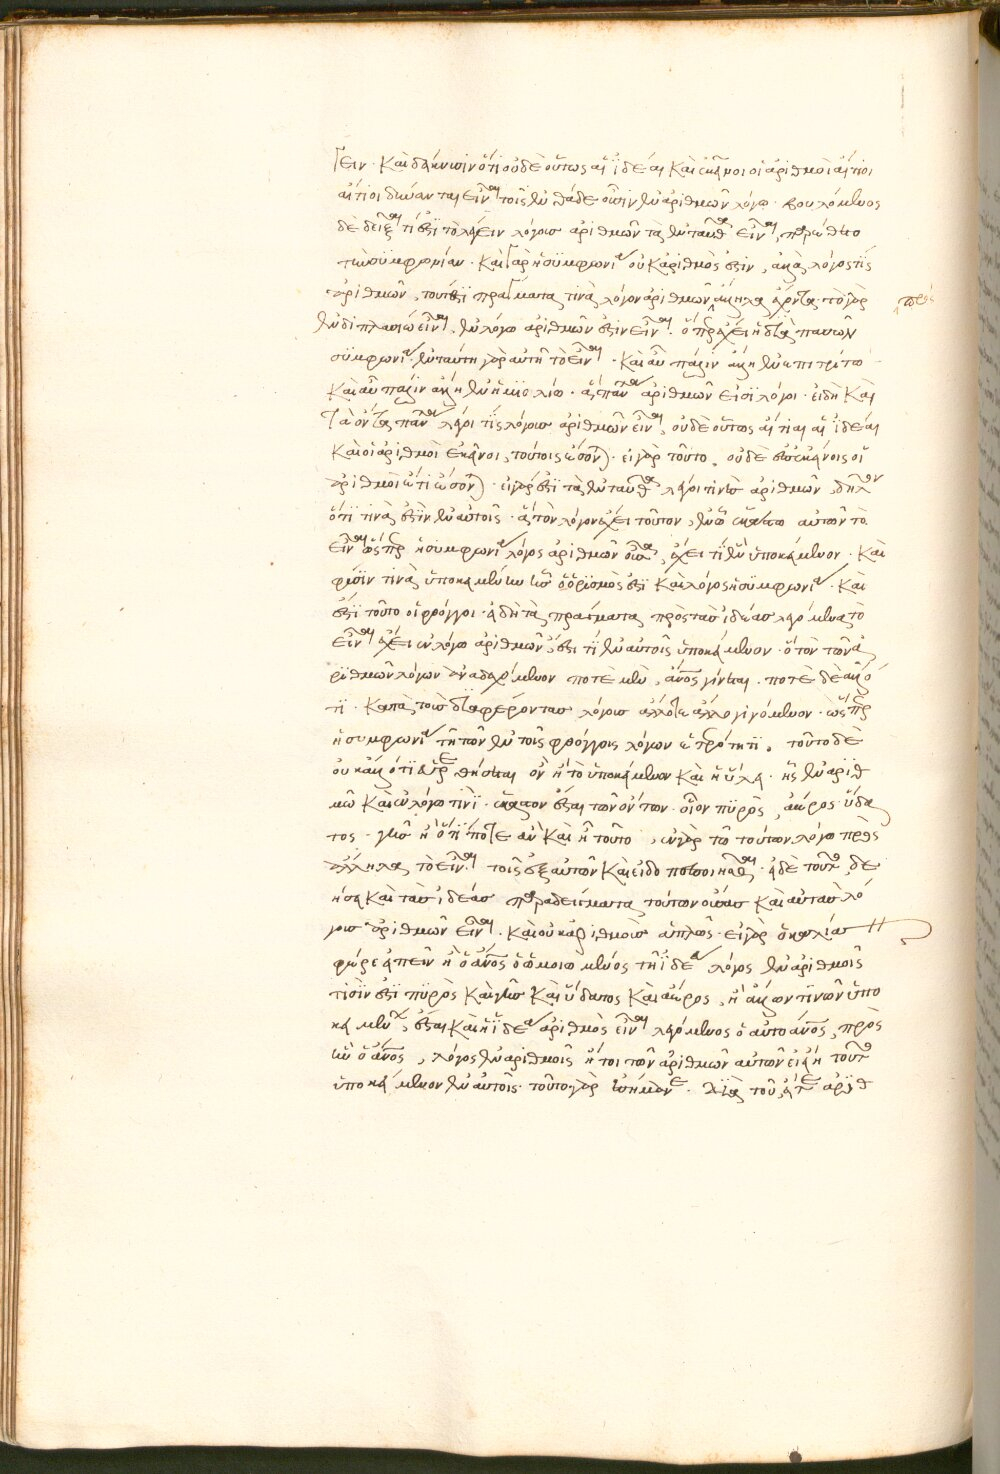 γειν· καὶ δείκνυσιν ὅτι οὐδὲ οὕτως αἱ ἰδέαι καὶ ἐκεῖνοι οἱ ἀριθμοὶ αἴτιοι
αἴτιοι δύνανται εἶναι τοῖς ἐνθάδε οὖσιν ἐν ἀριθμῶν λόγῳ· βουλόμενος
δὲ δεῖξαι τί ἐστι τὸ λέγειν λόγους ἀριθμῶν τὰ ἐνταῦθα εἶναι, παρέθετο
τὴν συμφωνίαν· καὶ γὰρ ἡ συμφωνία οὐκ ἀριθμός ἐστιν, ἀλλὰ λόγος τίς
ἀριθμῶν, τουτέστι πράγματα τινὰ λόγον ἀριθμῶν ἄλληλα ἔχοντα· τὸ γὰρ
πρὸς
ἐν διπλασίῳ εἶναι, ἐν λόγῳ ἀριθμῶν ἐστιν εἶναι· ὅπερ ἔχει ἡ διὰ πασῶν
συμφωνία, ἐν ταύτῃ γὰρ αὐτῇ τὸ εἶναι· καὶ αὖ πάλιν ἄλλη ἐν ἐπιτρίτῳ
καὶ αὖ πάλιν ἄλλη ἐν ἡμιολίῳ· ἅπαντα ἀριθμῶν εἰσὶ λόγοι· εἰ δὴ καὶ
τὰ ὄντα πάντα λέγοι τίς λόγους ἀριθμῶν εἶναι, οὐδὲ οὕτως αἴτιαι αἱ ἰδέαι
καὶ οἱ ἀριθμοὶ ἐκεῖνοι, τούτοις ἔσονται· εἰ γὰρ τοῦτο, οὐδὲ ἐπ' ἐκείνοις οἱ
ἀριθμοὶ ἔτι ἔσονται· εἰ γάρ ἐστι τὰ ἐνταῦθα λόγοι τινὲς ἀριθμῶν, δῆλον
ὅτι τινὰ ἐστὶν ἐν αὐτοῖς· ἃ τὸν λόγον ἔχει τοῦτον, ἐν ᾧ ἑκάστῳ αὐτῶν τὸ
εἶναι ὥσπερ ἡ συμφωνία λόγος ἀριθμῶν οὖσα, ἔχει τί ἓν ὑποκείμενον· καὶ
φύσιν τινὰ ὑποκειμένην ἧς ὁ ὁρισμός ἐστι καὶ λόγος ἡ συμφωνία· καὶ
ἐστι τοῦτο οἱ φθόγγοι· εἰ δὴ τὰ πράγματα πρὸς τὰς ἰδέας λεγόμενα τὸ
εἶναι ἔχει ἐν λόγῳ ἀριθμῶν, ἔσται τί ἐν αὐτοῖς ὑποκείμενον· ὃ τὸν τῶν ἀ
ριθμῶν λόγον ἀναδεχόμενον ποτὲ μὲν, ἄνθρωπος γίνεται· ποτὲ δὲ ἄλλό
τι· κατὰ τοὺς διαφέροντας λόγους ἄλλοτε ἄλλο γινόμενον· ὥσπερ
ἡ συμφωνία τῇ τῶν ἐν τοῖς φθόγγοις λόγων ἑτερότητι. τοῦτο δὲ
οὐκ ἄλλό τι εὑρεθήσεται ὂν ἢ τὸ ὑποκείμενον καὶ ἡ ὕλη· ἧς ἐν ἀριθ
μῷ καὶ ἐν λόγῳ τινὶ· ἕκαστον ἔσται τῶν ὄντων· οἷον πυρὸς, ἀέρος· ὕδα
τος· γῆς ἢ ὅτι ποτε ἂν καὶ ᾖ τοῦτο, ἐν γὰρ τῷ τούτων λόγῳ πρὸς
ἄλληλα τὸ εἶναι τοῖς ἐξ αὐτῶν καὶ εἰδοποιεῖσθαι· εἰ δὲ τοῦτο, δε
ήσει καὶ τὰς ἰδέας παραδείγματα τούτων οὔσας καὶ αὐτὰς λό
γους ἀριθμῶν εἶναι· καὶ οὐκ ἀριθμοὺς ἁπλῶς· εἰ γὰρ ὁ καλλίας
φέρε εἰπεῖν ἢ ὁ ἄνθρωπος ὁ ὁμοιωμένος τῇ ἰδέᾳ λόγος ἐν ἀριθμοῖς
τισίν ἐστι πυρὸς καὶ γῆς καὶ ὕδατος καὶ ἀέρος, ἢ ἄλλων τινῶν ὑπο
κειμένων, ἔσται καὶ ἡ ἰδέα ἀριθμὸς εἶναι λεγόμενος ὁ αὐτοάνθρωπος, πρὸς
ὃν ὁ ἄνθρωπος, λόγος ἐν ἀριθμοῖς ἤτοι τῶν ἀριθμῶν αὐτῶν εἰ εἴη τοῦτο
ὑποκείμενον ἐν αὐτοῖς· τοῦτο γὰρ ἐσήμανε· διὰ τοῦ, εἴτε ἀριθ